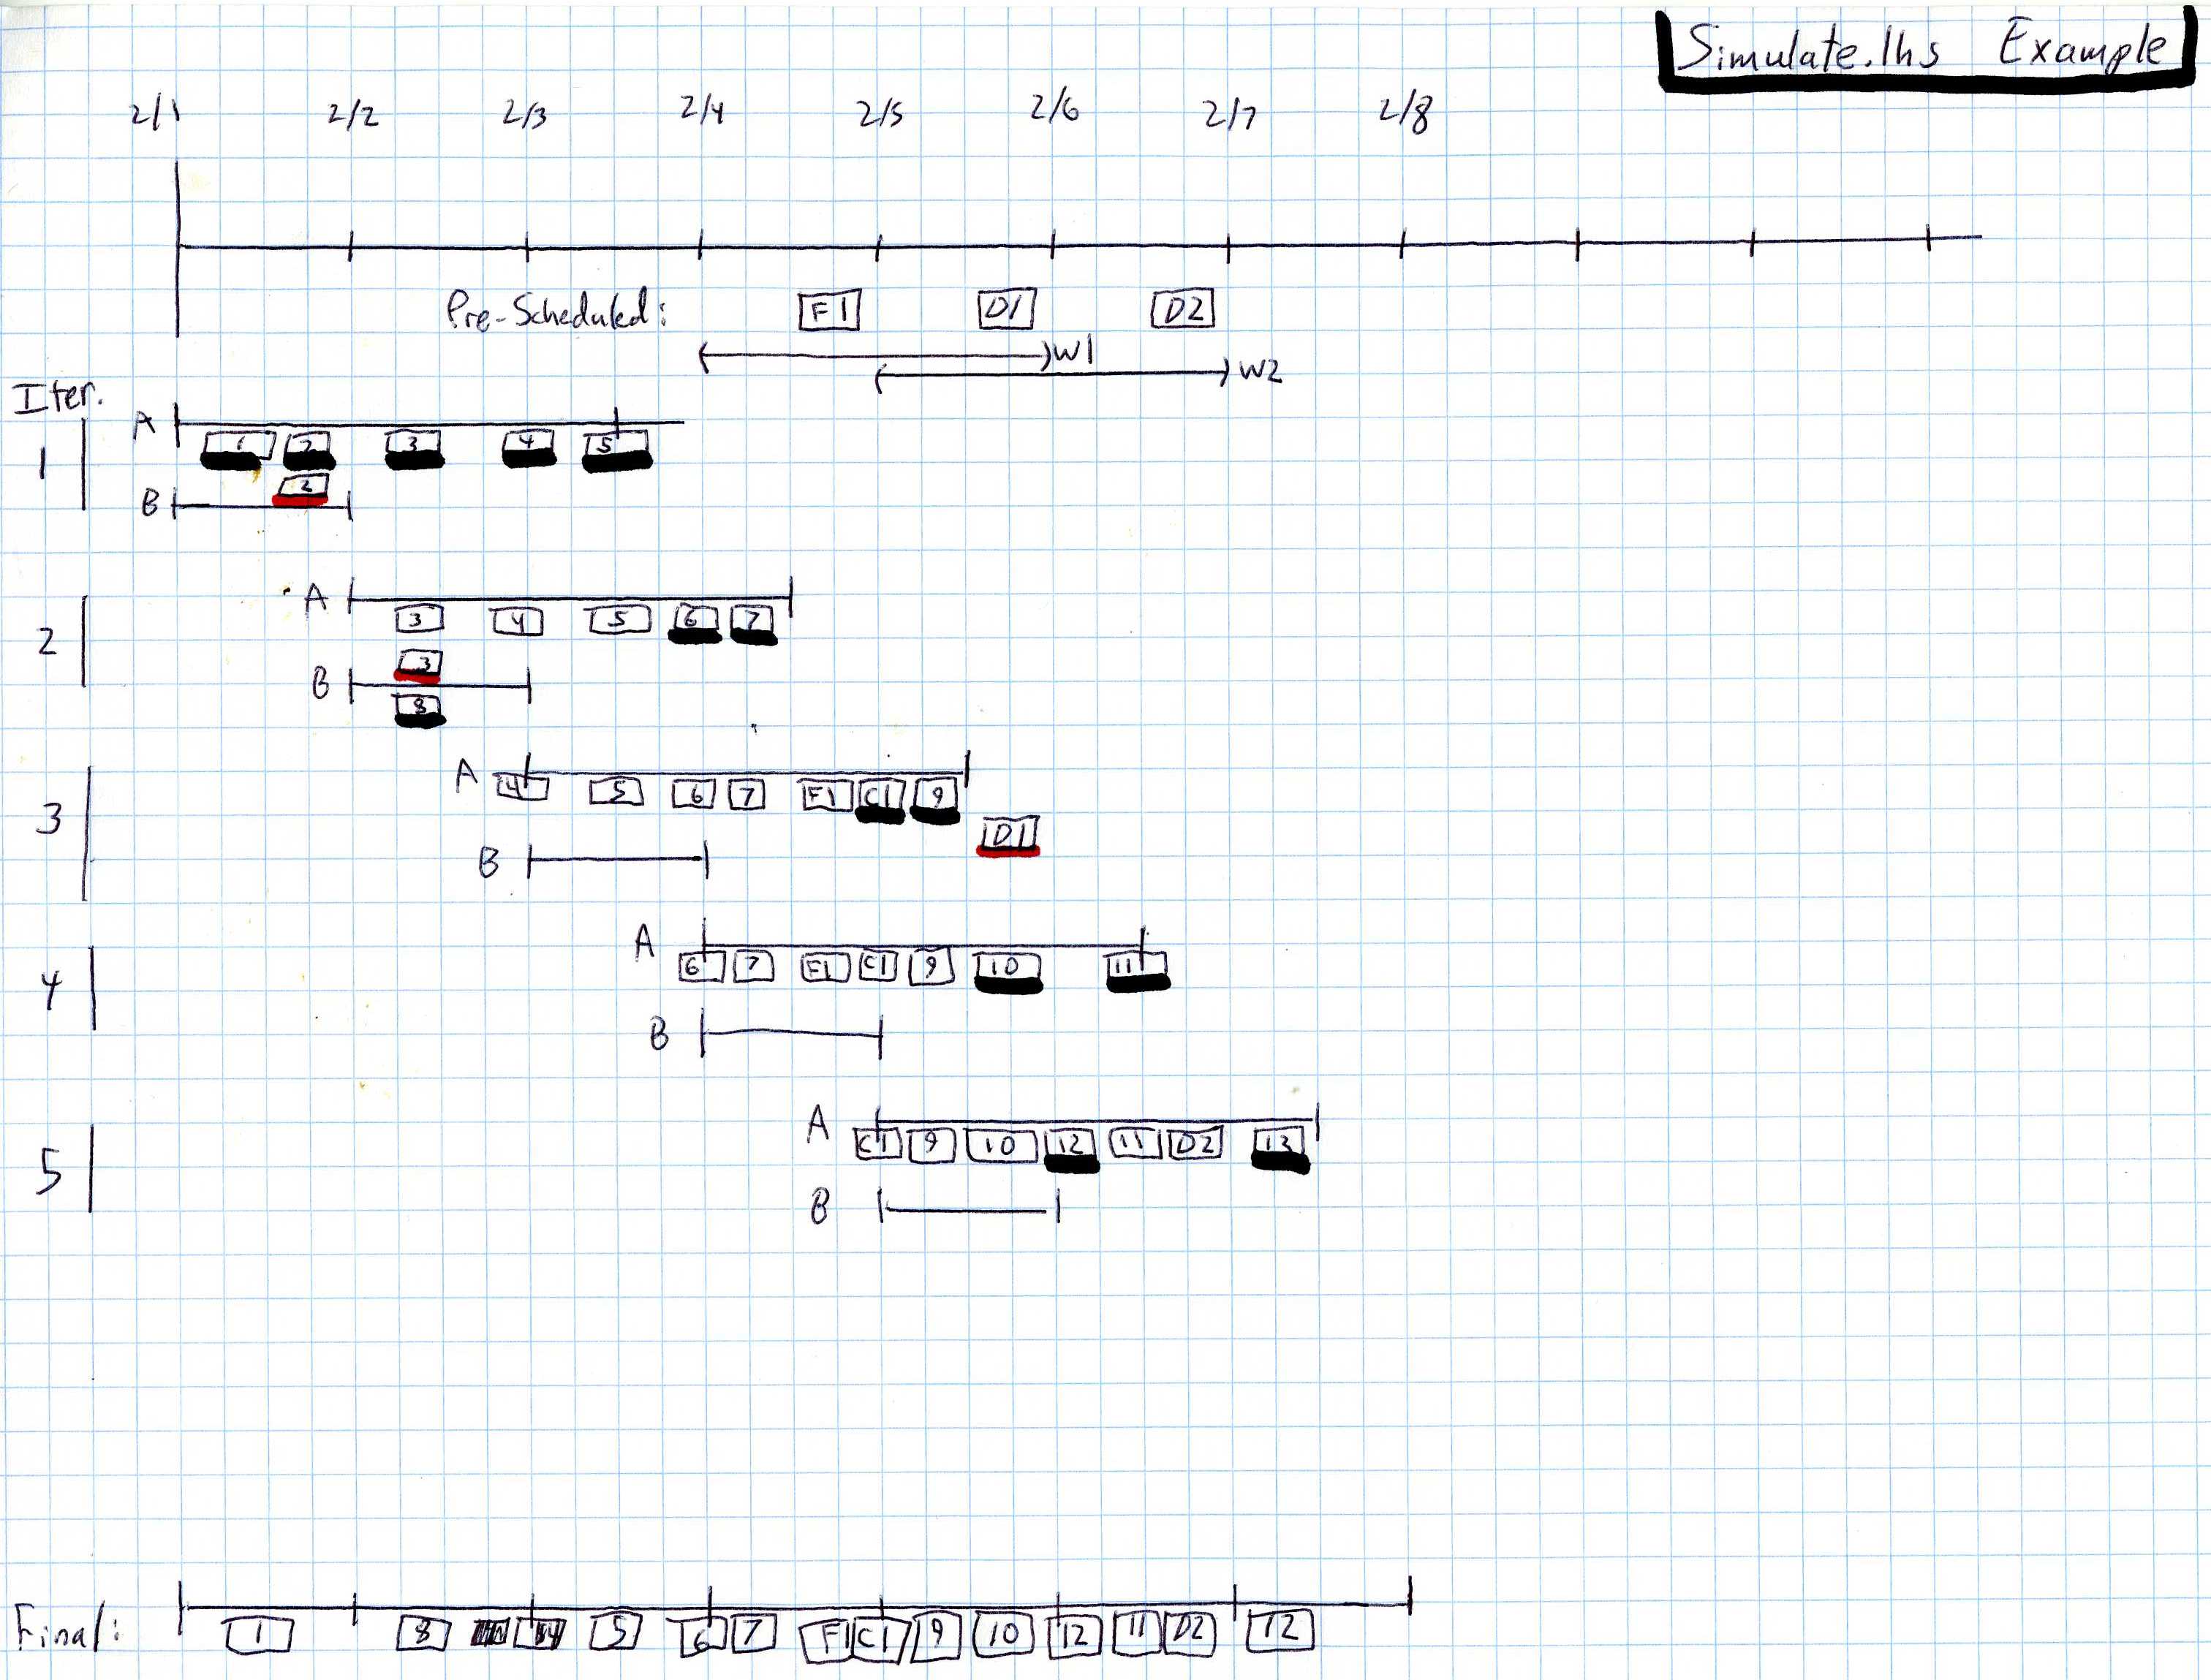 Simulate.lhs Example
2/1 2/2 2/3 2/4 2/5 2/6 2/7 2/8
Pre-Scheduled: F1 D1 D2
W1
W2
Iter.
1
A
1 2 3 4 5
2
B
2
A
3 4 5 6 7
3
B
8
3
A
4 5 6 7 F1 C1 9
D1
B
4
A
6 7 F1 C1 9 10 11
B
5
A
C1 9 10 12 11 D2 13
B
Final: 1 8 4 5 6 7 F1 C1 9 10 12 11 D2 12